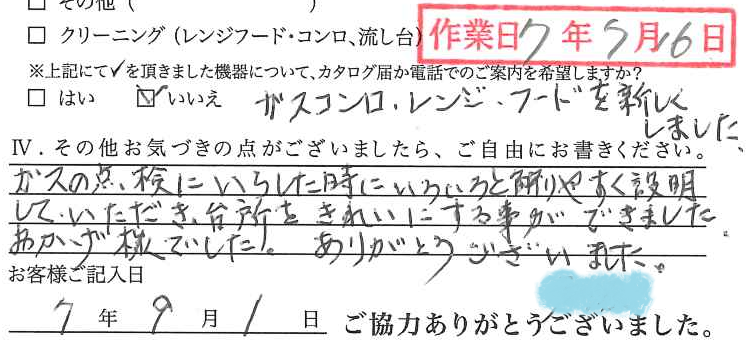 □ その他（　　　　　　　　）
□ クリーニング（レンジフード・コンロ、流し台）
作業日 7年5月16日
※上記にて✓を頂きました機器について、カタログ届か電話でのご案内を希望しますか?
□ はい ☑ いいえ ガスコンロ、レンジ・フードを新しく
しました、
Ⅳ．その他お気づきの点がございましたら、ご自由にお書きください。
ガスの点、検にいらした時にいろいろと解りやすく説明
して、いただき、台所をきれいにする事ができました。
おかげ様でした!。 ありがとうございました。
お客様ご記入日
7 年 9 月 1 日 ご協力ありがとうございました。